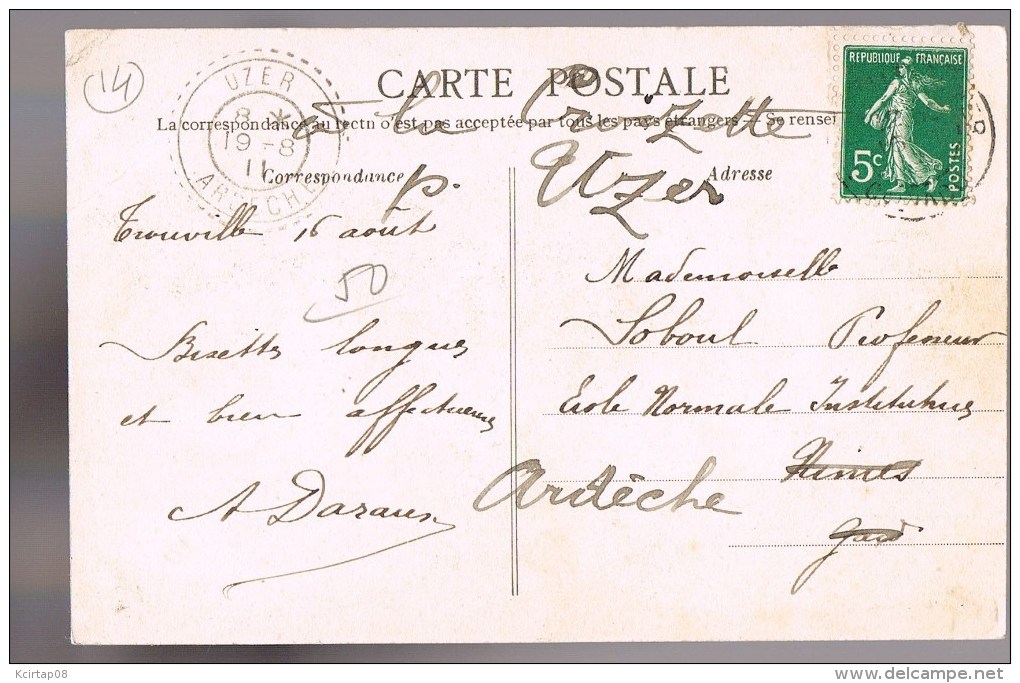 14
UZER
8 *
19-8
11
ARDÈCHE
CARTE POSTALE
à la Croizette
La correspondance au recto n'est pas acceptée par tous les pays étrangers — Se rensei
REPUBLIQUE FRANÇAISE
5c
POSTES
Correspondance
p. Uzer
Adresse
Trouville 16 août
50
Mademoiselle
Soboul Professeur
Ecole Normale Institutrices
Nimes
Gard
Ardèche
Bisettes longues
et bien affectueuses
A Daraux
Kcirtap08
delcampe.net